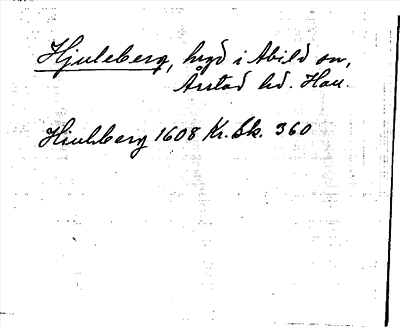 Hjuleberg, hvgd i Abild sn,
Årstad hd. Hall.
Hiulsberg 1608 Kr. Sk. 360